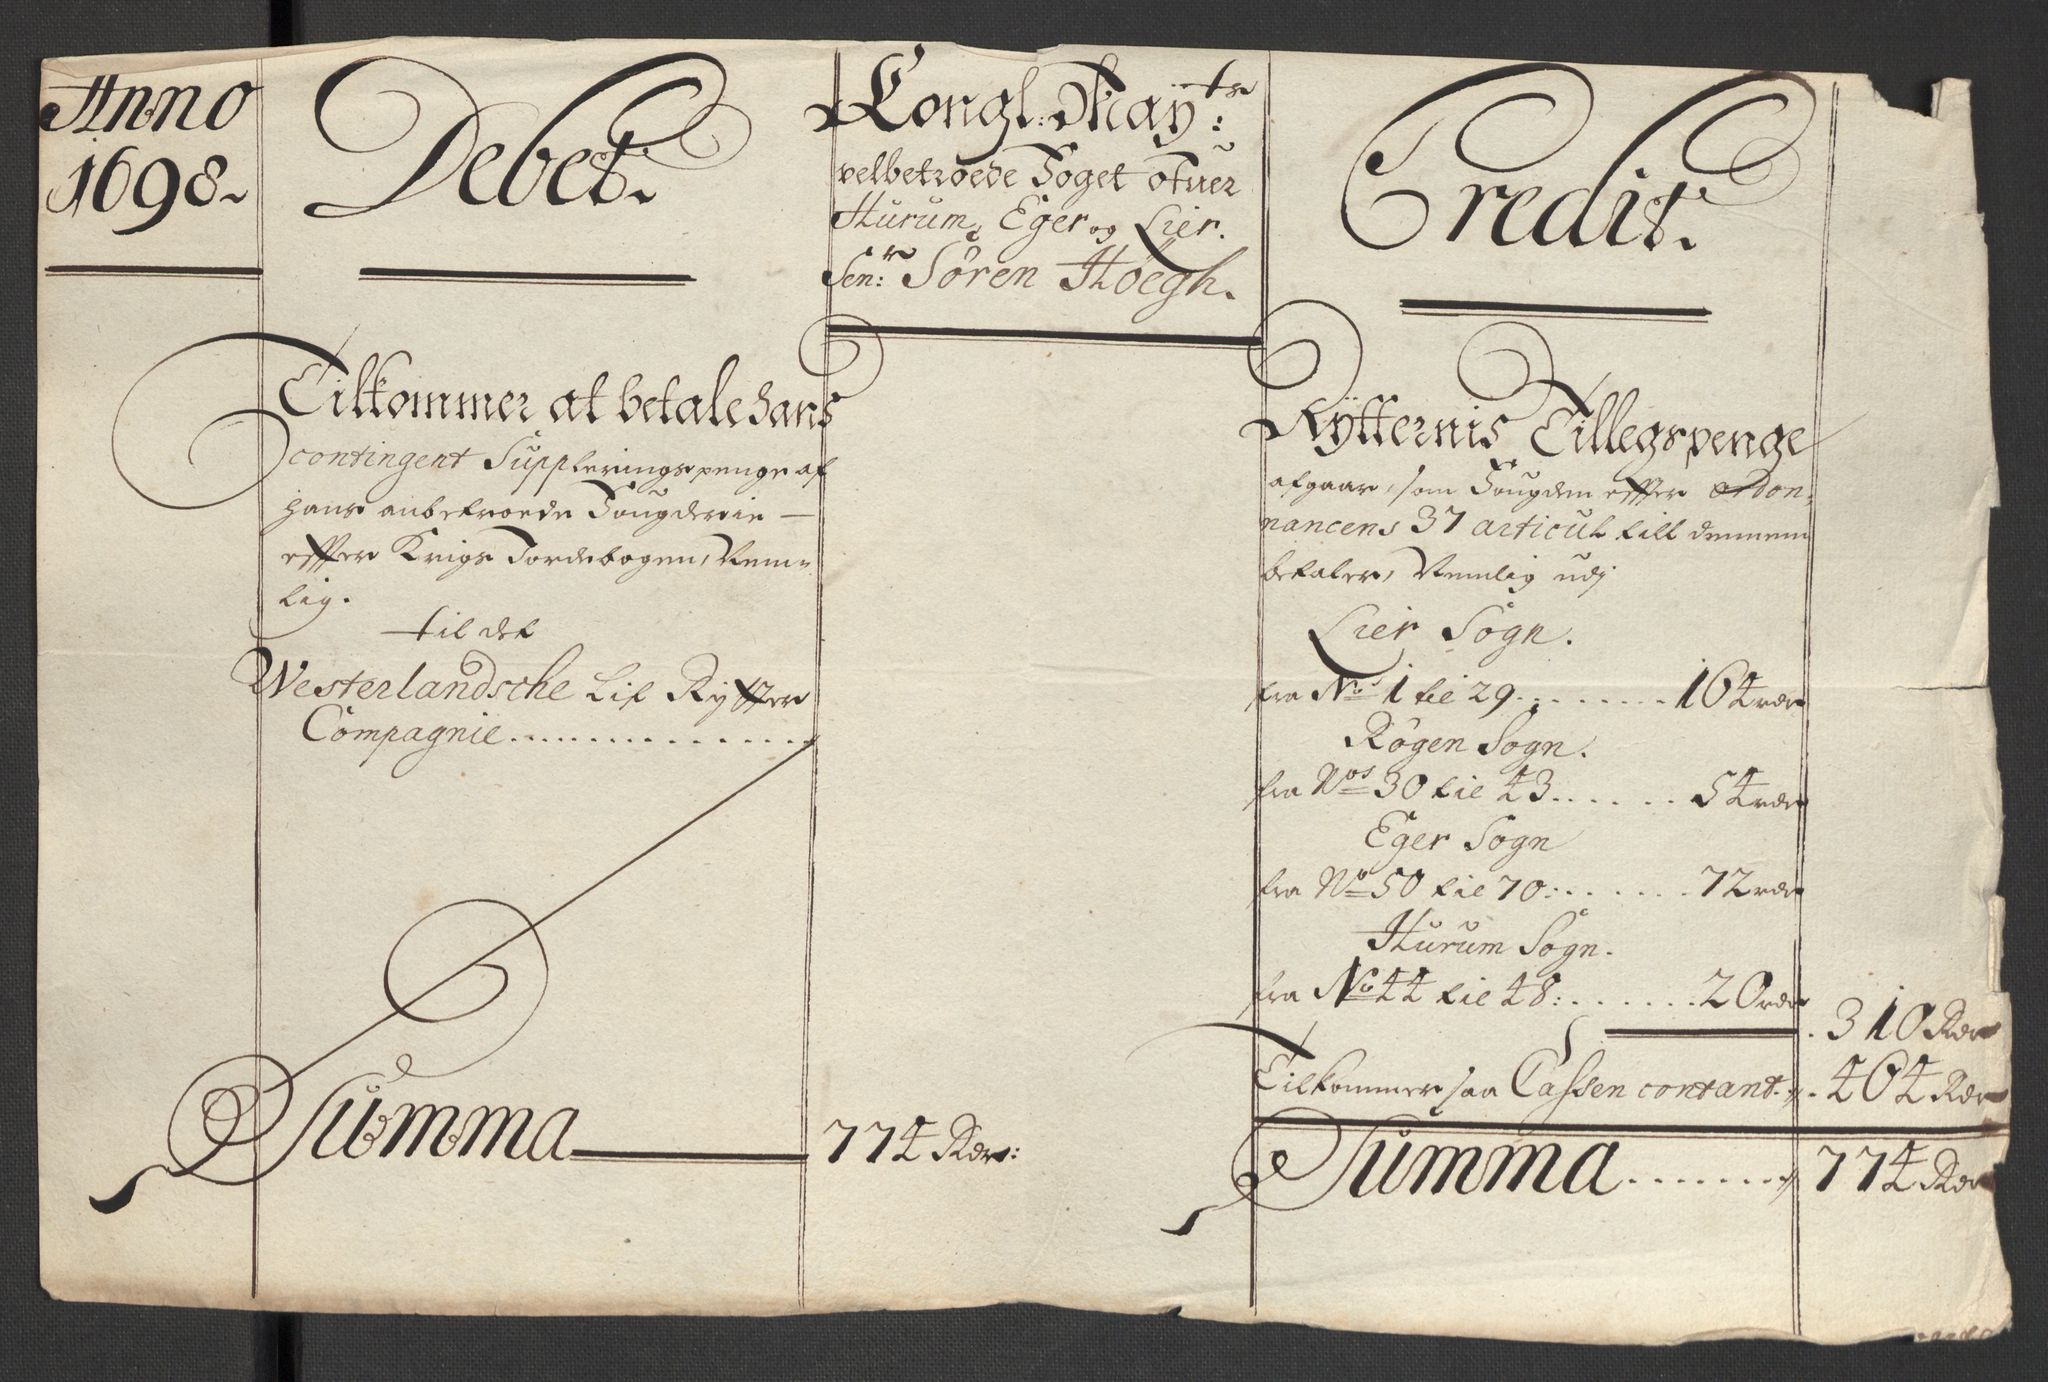 Anno
1698
Debet.
Kongl: May:ts
velbetroede Foget ofuer
Hurum, Eger og Lier.
Sen:r Sören Höegh.
Credit.
Tilkommer at betale hans
contingent Suppleringspenge af
hans anbetroede Fougderie
effter Krigs Jordebogen, Nem-
lig.
til det
Westerlandsche Lif Rytter
Compagnie
Summa 774 Rdr:
Rytternis Tillegspenge
afgaar, som Fougden effter ordon-
nancens 37 articul till dennem
betaler, Nemlig udj
Lier Sogn.
fra No:s 1 til 29 164 rdr
Rögen Sogn.
fra Nos 30 til 43 54 rdr
Eger Sogn
fra No 50 til 70: 72 rdr
Hurum Sogn.
fra No 44 til 48: 20 rdr
310 Rdr
Tilkommer saa Cassen contant. 464 Rdr
Summa 774 Rdr